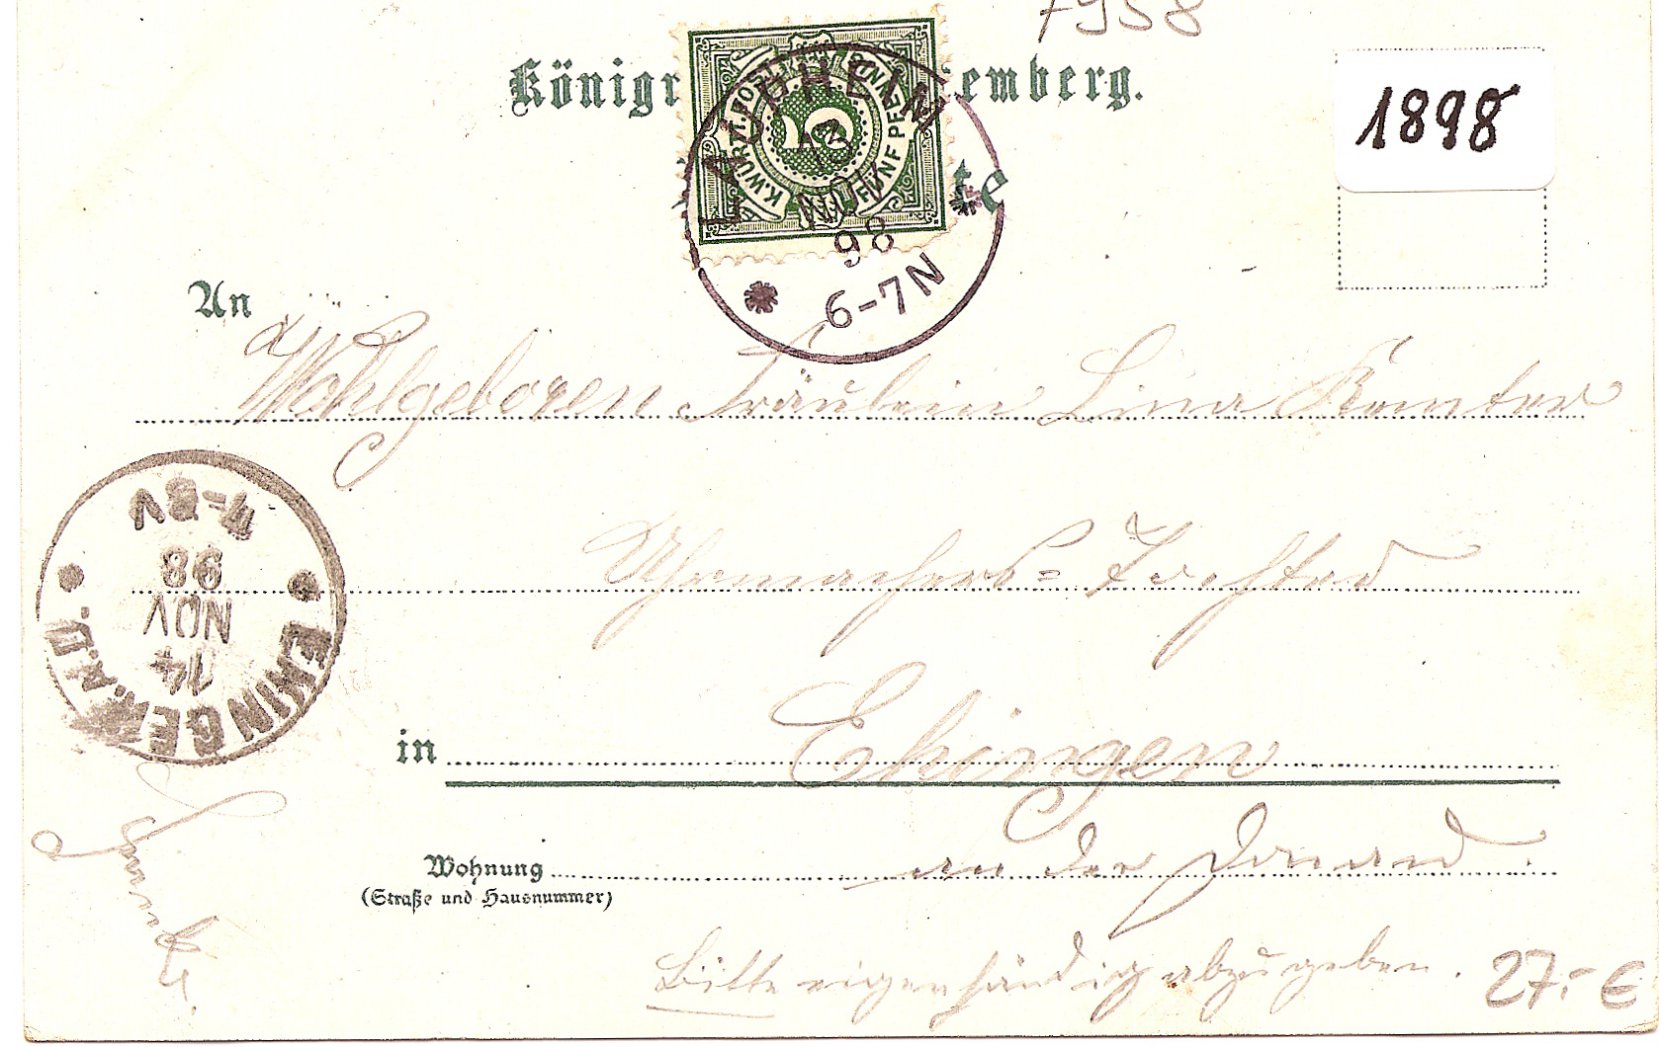 7958
Königr emberg.
te
K. WÜRTT. POST
FÜNF PFENNIG
5
LAUPHEIM
13
NOV
98
6-7N
1898
An
Wohlgeboren Fräulein Lina
Uhrmachers=Tochter
in Ehingen
Wohnung an der Donau.
(Straße und Hausnummer)
Bitte eigenhändig abzugeben.
27.- €
EHINGEN A.D.
14
NOV
98
7-8V